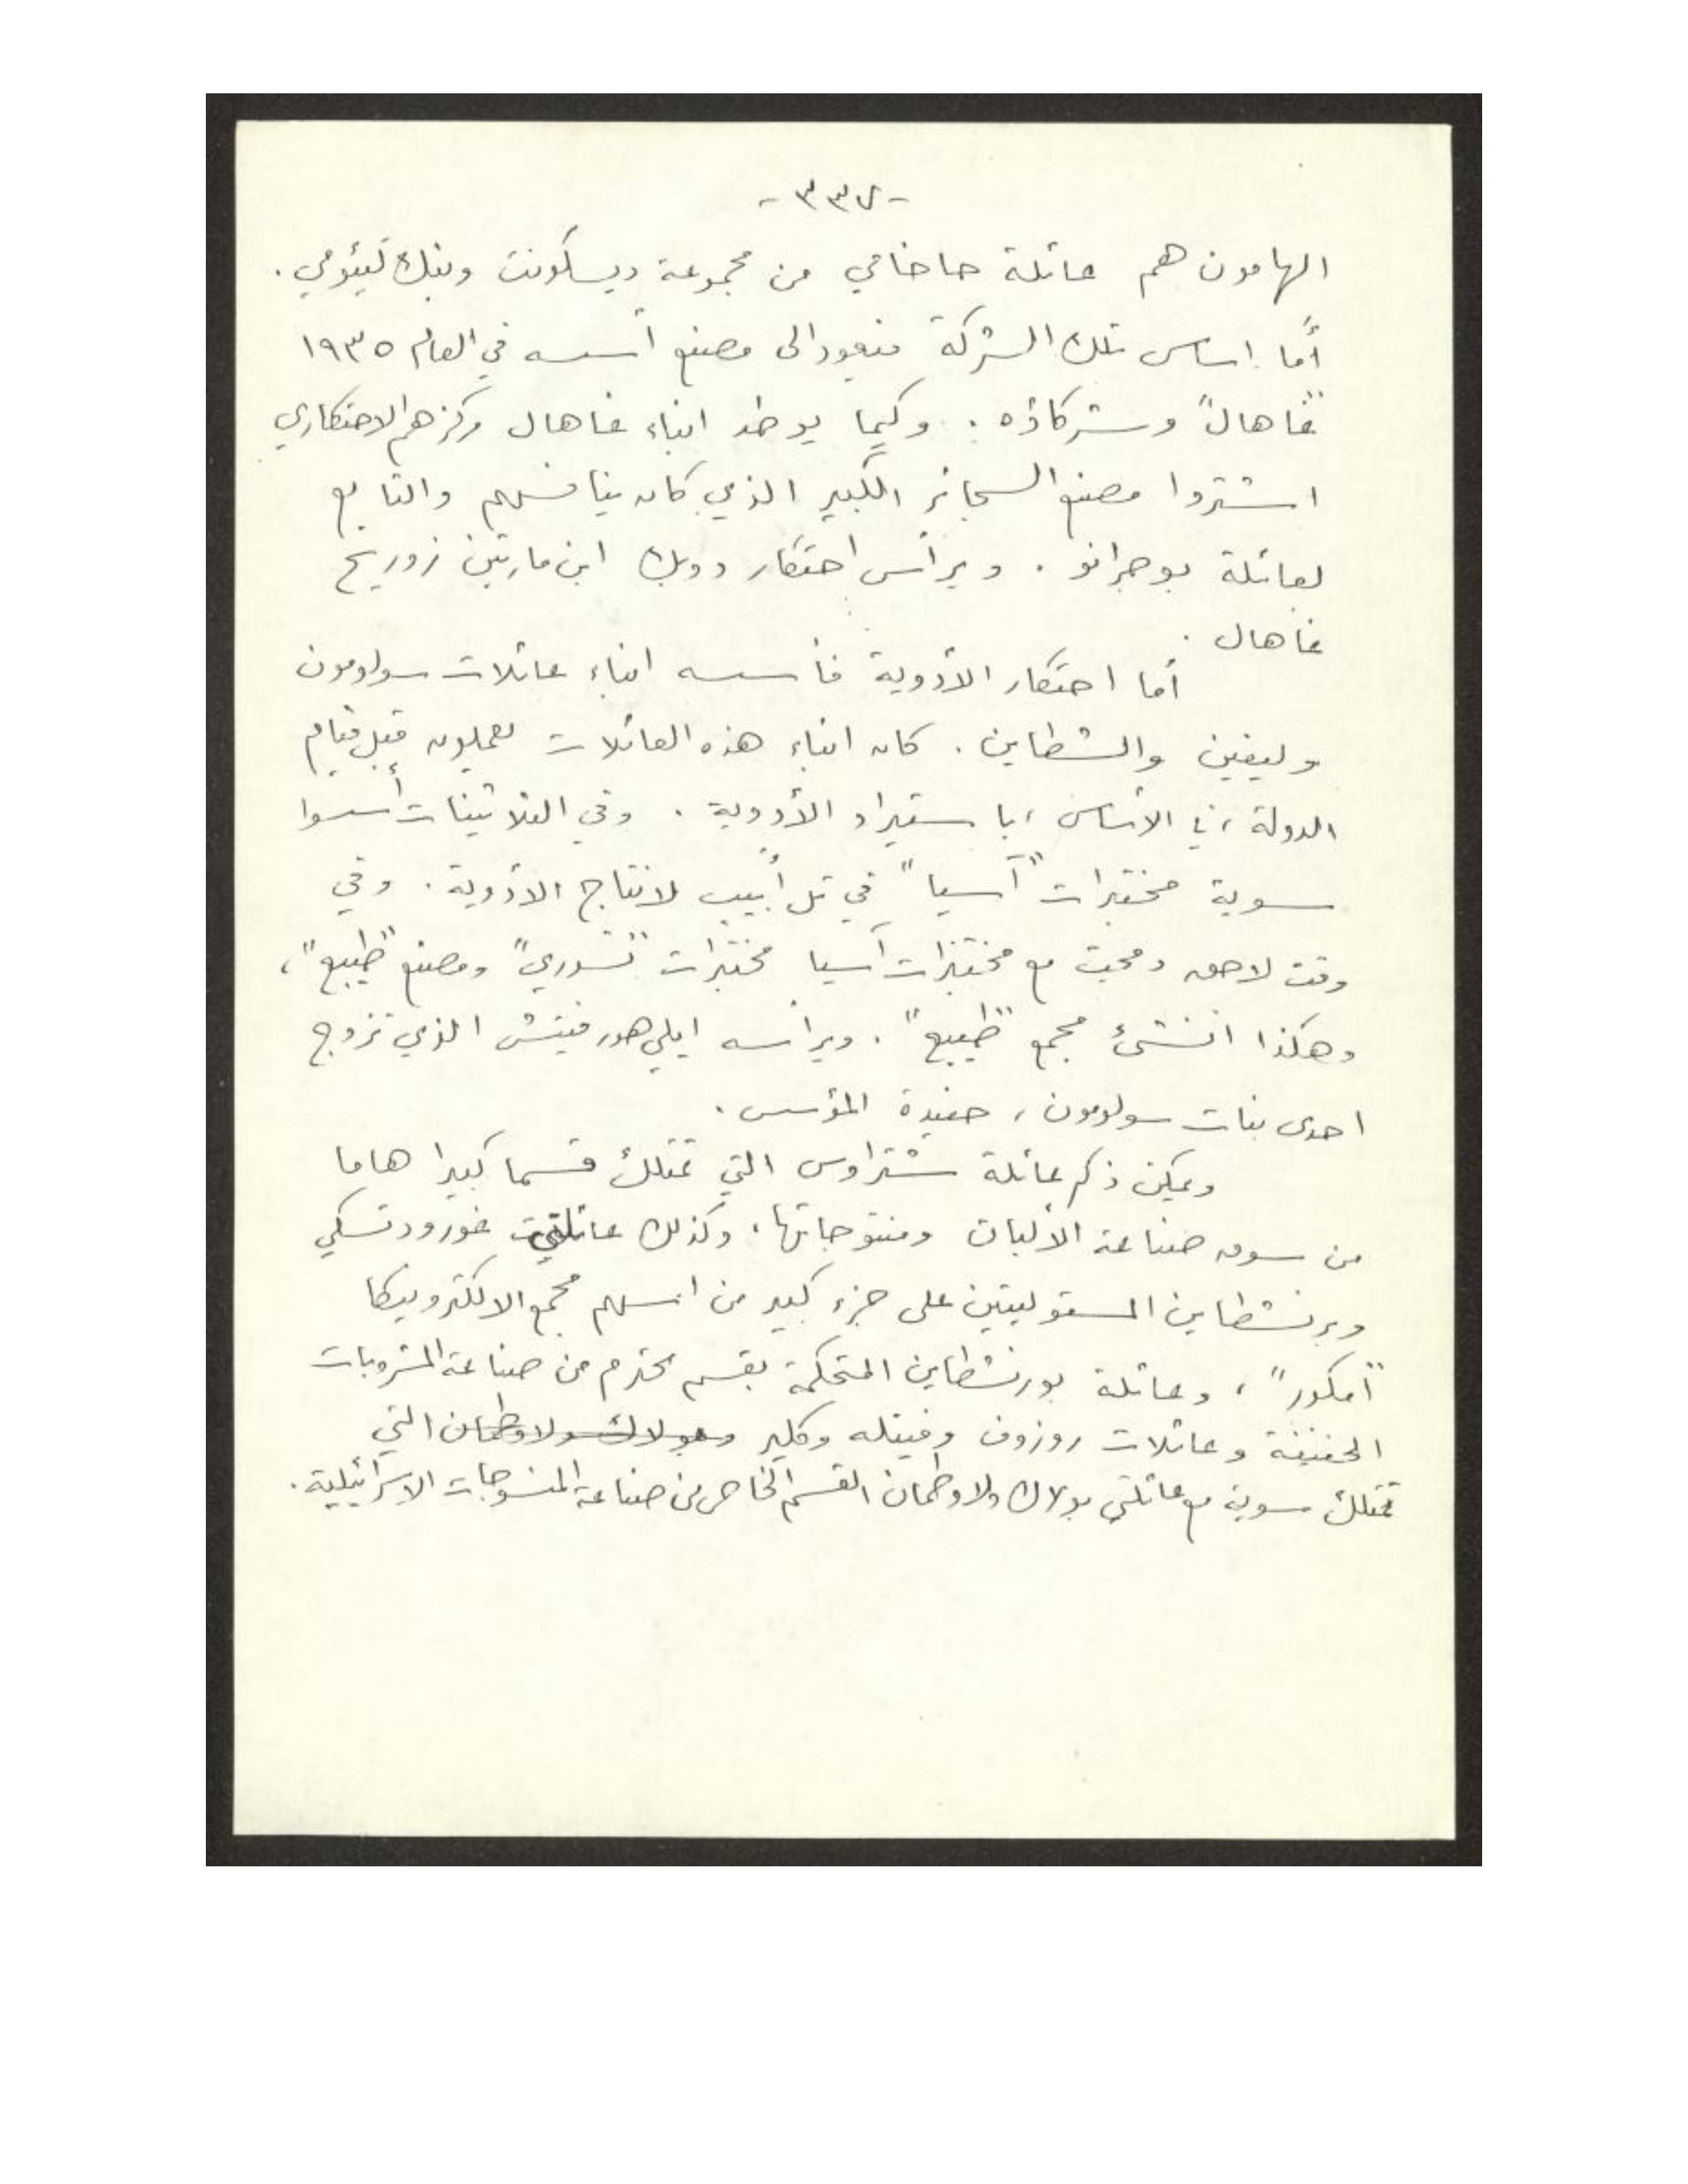 - ٣٣٧ -
الهامون هم عائلة حاخامي من مجموعة ديسكونت وبنك ليئومي .
أما اساس تلك الشركة فيعود الى مصنع أسسه في العام ١٩٣٥
"غاهال" وشركاؤه . وكيما يوطد ابناء غاهال مركزهم الاحتكاري
اشتروا مصنع السجائر الكبير الذي كان ينافسهم والتابع
لعائلة بوجرانو . ويرأس احتكار دوبك ابن مارتين زوريخ
غاهال .
أما احتكار الأدوية فأسسه ابناء عائلات سولومون
وليفين والشطاين . كان ابناء هذه العائلات يعملون قبل قيام
الدولة ، في الأساس ، باستيراد الأدوية . وفي الثلاثينات أسسوا
سوية مختبرات "آسيا" في تل أبيب لانتاج الأدوية . وفي
وقت لاحق دمجت مع مختبرات آسيا مختبرات "تسوري" ومصنع "طيبع" ،
وهكذا انشئ مجمع "طيبع" . ويرأسه ايلي هورفيتش الذي تزوج
احدى بنات سولومون ، حفيدة المؤسس .
ويمكن ذكر عائلة شتراوس التي تمتلك قسما كبيرا هاما
من سوق صناعة الألبان ومنتوجاتها ، وكذلك عائلتي غورودتسكي
وبرنشطاين المستوليتين على جزء كبير من اسهم مجمع الالكترونيكا
"أمكور" ، وعائلة بورنشطاين المتحكمة بقسم محترم من صناعة المشروبات
الخفيفة وعائلات روزوف وفيتله وكلير وبولاك ولاوطمان التي
تمتلك سوية مع عائلتي بولاك ولاوطمان القسم الخاص من صناعة المنسوجات الاسرائيلية .